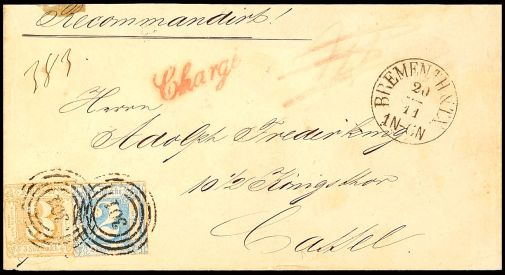 Recommandirt!
383.
Chargé
BREMEN TH & TX
20
11
1N-GN
Herrn
Adolph Frederking
10 1/2 Königsthor
Cassel
2